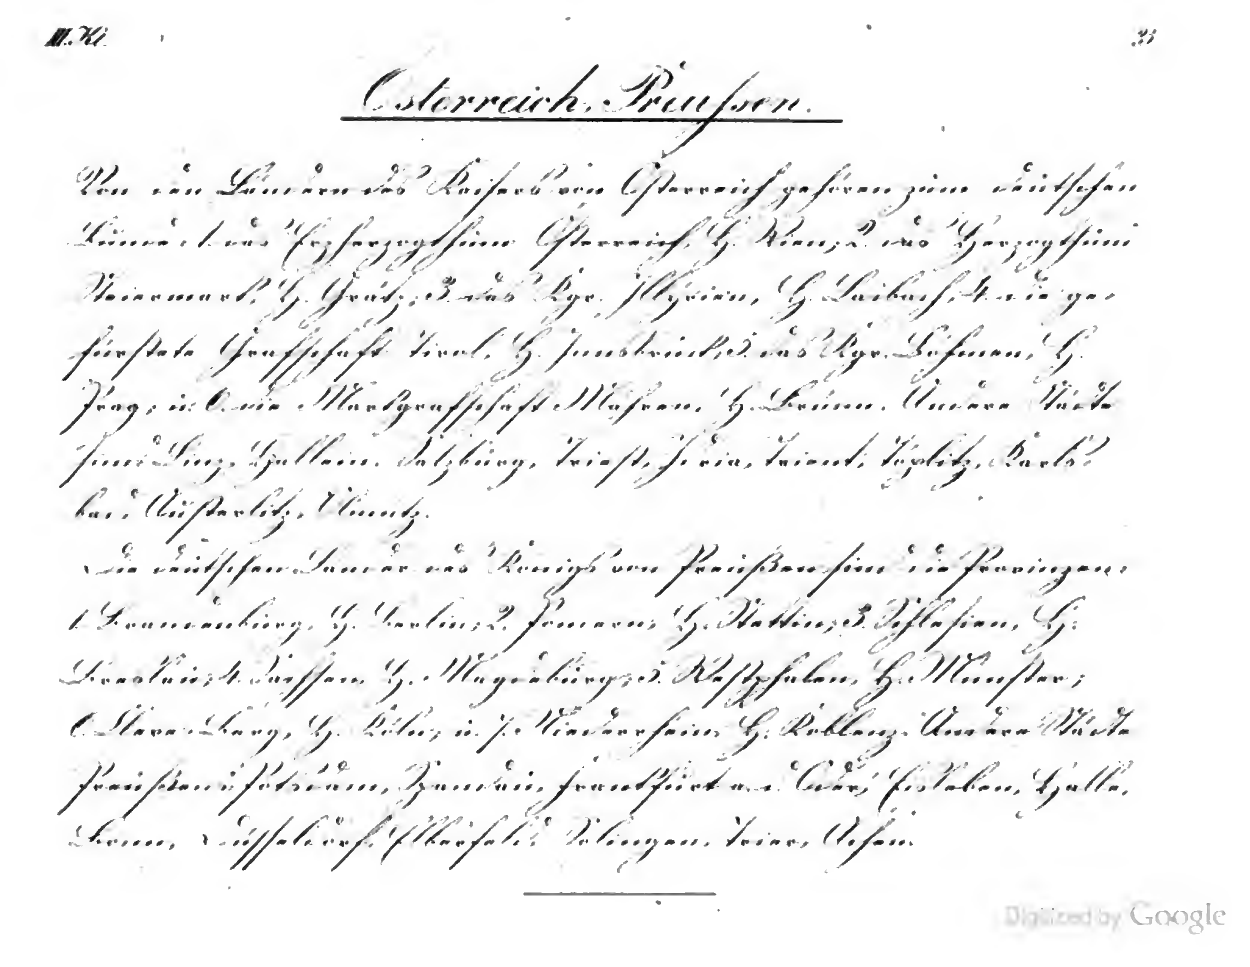 III. Kl. 35
Österreich, Preußen.
Von den Ländern des Kaisers von Österreich gehören zum deutschen
Bunde: 1. das Erzherzogthum Österreich, H. Wien; 2. das Herzogthum
Steiermark, H. Grätz; 3. das Kgr. Illyrien, H. Laibach; 4. die ge-
fürstete Grafschaft Tirol, H. Innsbruck; 5. das Kgr. Böhmen, H.
Prag; u. 6. die Markgrafschaft Mähren, H. Brünn. Andere Städte
sind: Linz, Hallein, Salzburg, Triest, Idria, Trient, Töplitz, Karls-
bad, Austerlitz, Olmütz.
Die deutschen Länder des Königs von Preußen sind die Provinzen:
1. Brandenburg, H. Berlin; 2. Pomern, H. Stettin; 3. Schlesien, H.
Breslau; 4. Sachsen, H. Magdeburg; 5. Westphalen, H. Münster;
6. Kleve-Berg, H. Köln; u. 7. Niederrhein, H. Koblenz. Andere Städte
Preußens: Potsdam, Spandau, Frankfurt a. d. Oder, Eisleben, Halle,
Bonn, Düsseldorf, Elberfeld, Solingen, Trier, Achen.
Digitized by Google